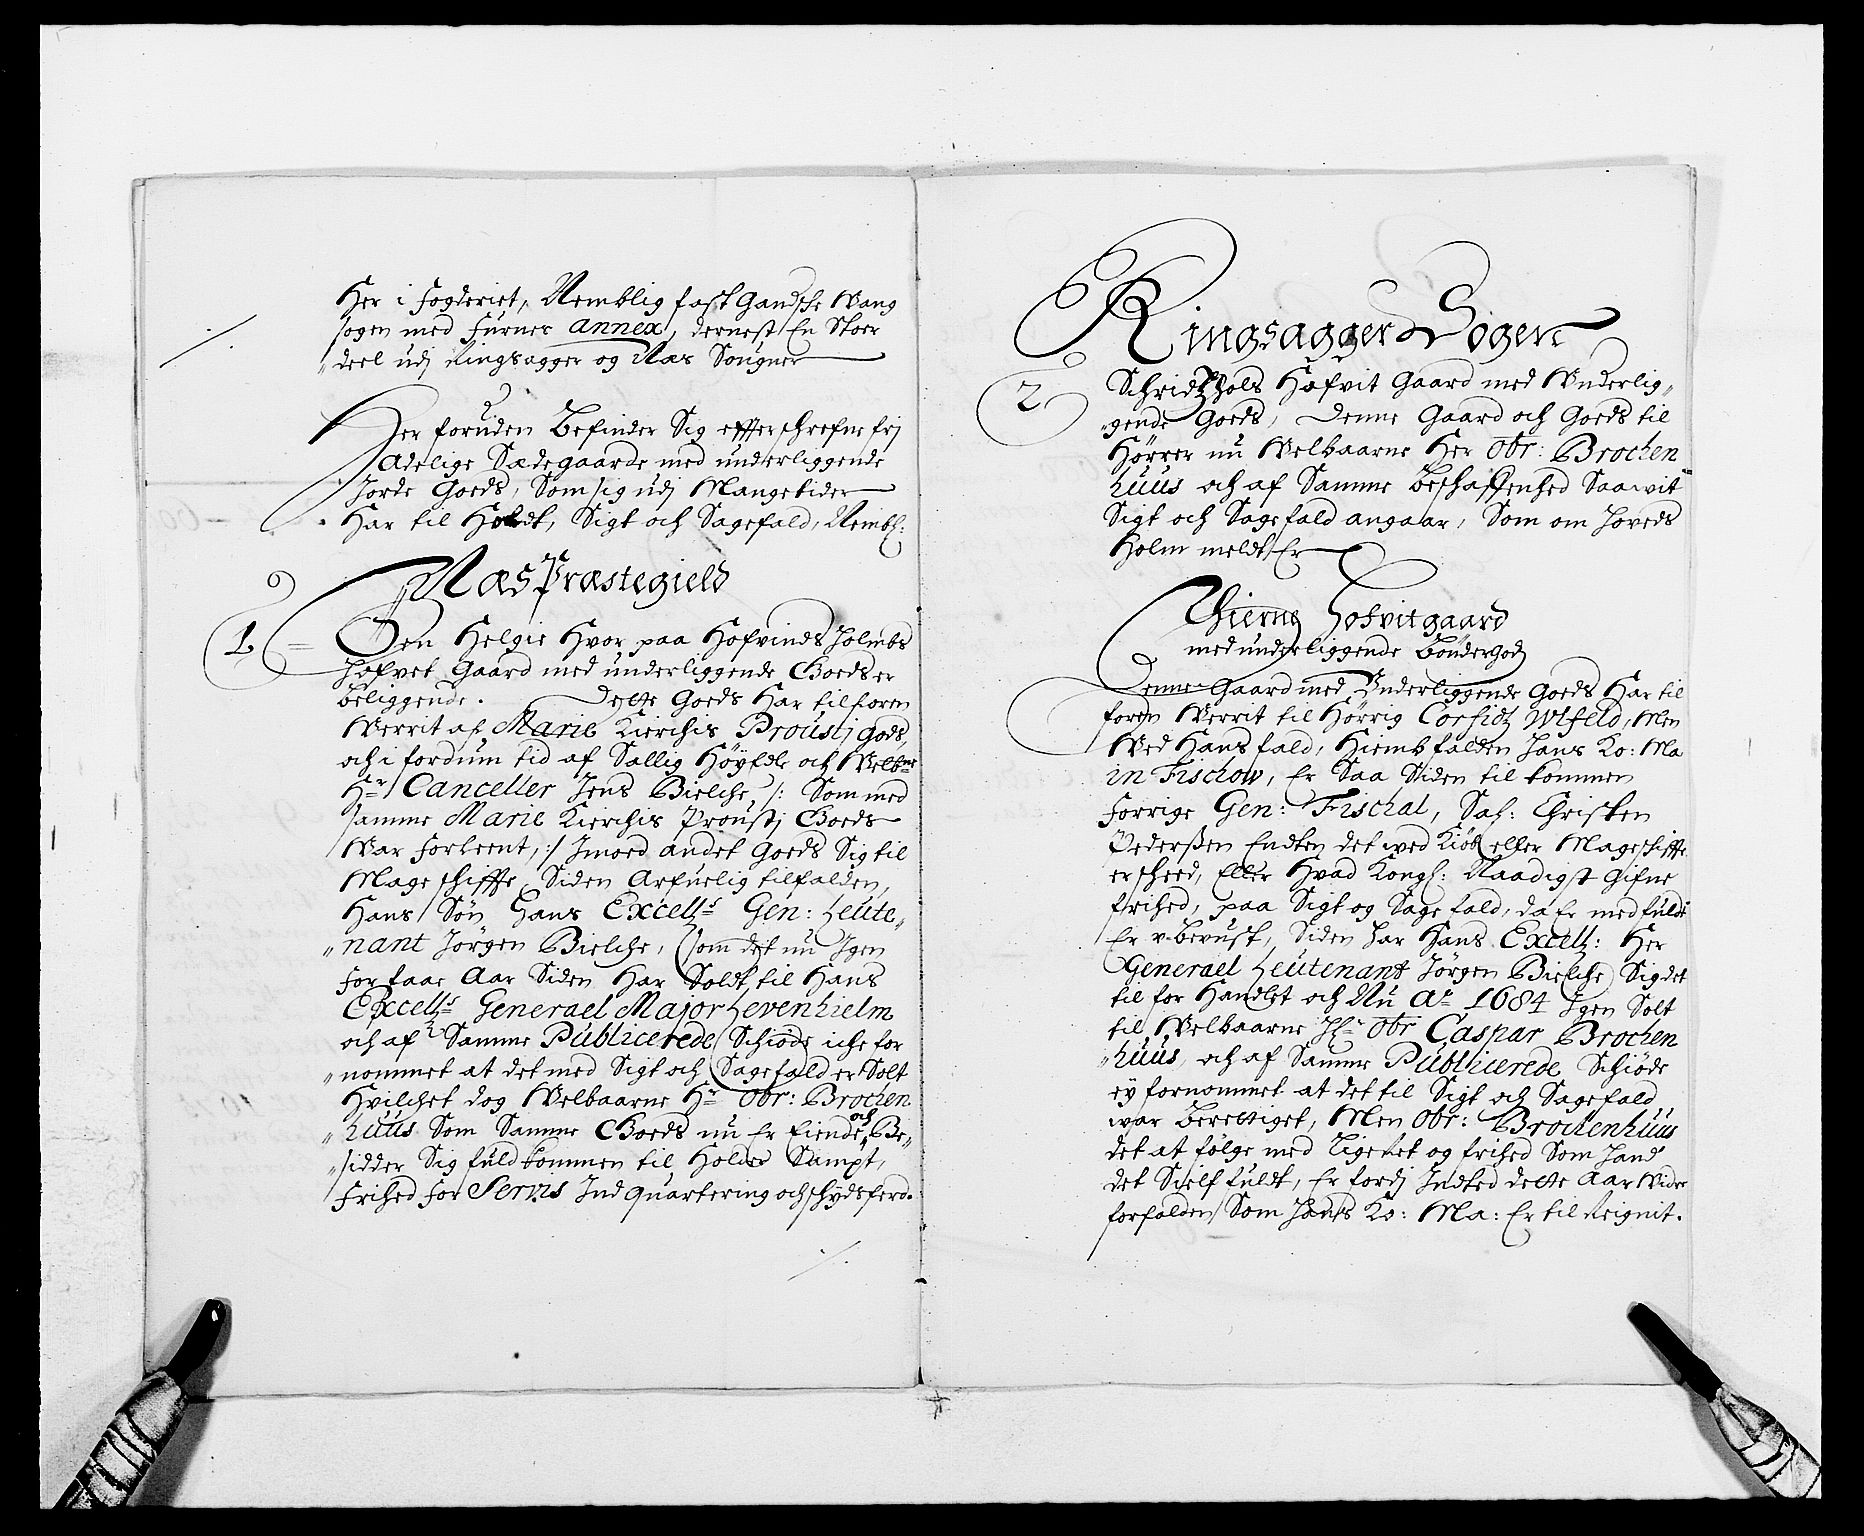 Her i fogderiet, Nemblig fast gandsche Wang
sogen med Furnes annex, dernest En Stoer
deel udj Ringsagger og Næs Sougner
Her foruden Befinder Sig effterschrefne frj
Adelige Sædegaarde med underliggende
Jorde Goeds, Som sig udj Mangetider
Har til Holdt, Sigt och Sagefald, Nembl:
Næs Præstegield
1 Den Helgie Hvor paa Hofvinds Holmbs
Hofvet Gaard med underliggende Goeds er
beliggende. Dette Goeds Har tilforen
Werrit af Marie Kierchis Proustj gods,
och i fordum tid af Sallig Höyedle och Welbne
Hr Canceller Jens Bielche /: Som med
samme Marie Kierchis Proustj Goeds
War forlent, :/ Imoed andet Goeds Sig til
Mageschiffte, Siden Arfuelig tilfalden,
Hans Sön Hans Excellz Gen: Leute„
„nant Jörgen Bielche, som det nu Igen
for faae Aar Siden Har Soldt til Hans
Excellz Generael Major Levenhielm
och af Samme Publicerede Schiöde iche for
„nommet at det med Sigt och Sagefald er Solt
Hvilchet dog Welbaarne Hr Obr: Brochen
„huus Som Samme Goeds nu Er Eiende och Be„
„sidder Sig fuldkommen til Holder Sampt,
Frihed for Servis Indquartering och schydsferd.
Ringsagger Sogen
2 Schridtzhols Hofvit Gaard med Underlig„
„gende Goeds, Denne Gaard och Goeds til
Hörrer nu Welbaarne Her Obr: Brochen
huus och af Samme Beschaffenhed Saawit
Sigt och Sagefald angaar, Som om Hoveds
Holm meldt Er
Thierne Hofvitgaard
med underliggende Böndergods
Denne Gaard med Underliggende Goeds Har til
foren Werrit til Hörrig Corfidtz Wlfeld, Men
Wed Hans fald, Hiemb falden Hans Ko: Ma
in Fischow, Er Saa Siden til kommen
Forrige Gen: Fischal, Sal: Christen
Pederßen Endten det wed Kiöb eller Mageschiffte
er scheed, Eller Hvad Kongl: Naadigst Gifne
frihed, paa Sigt og Sagefald, da Er med fulde
Er v-bevust, Siden Har Hans Excell: Her
Generael Leutenant Jörgen Bielche Sig det
til for Handlet och Nu Ao 1684 Igen Solt
til Welbaarne Hr Obr Caspar Brochen
„huus, och af Samme Publicerede Schiöde
ey fornommet at det til Sigt och Sagefald
war Berettiget, Men Obr: Brochenhuus
det at fölge med Liget og frihed Som Hand
det Sielf fuldt, Er fordj Indted dette Aar Wider
forfalden Som Hans Ko: Ma: Er til Reignit.